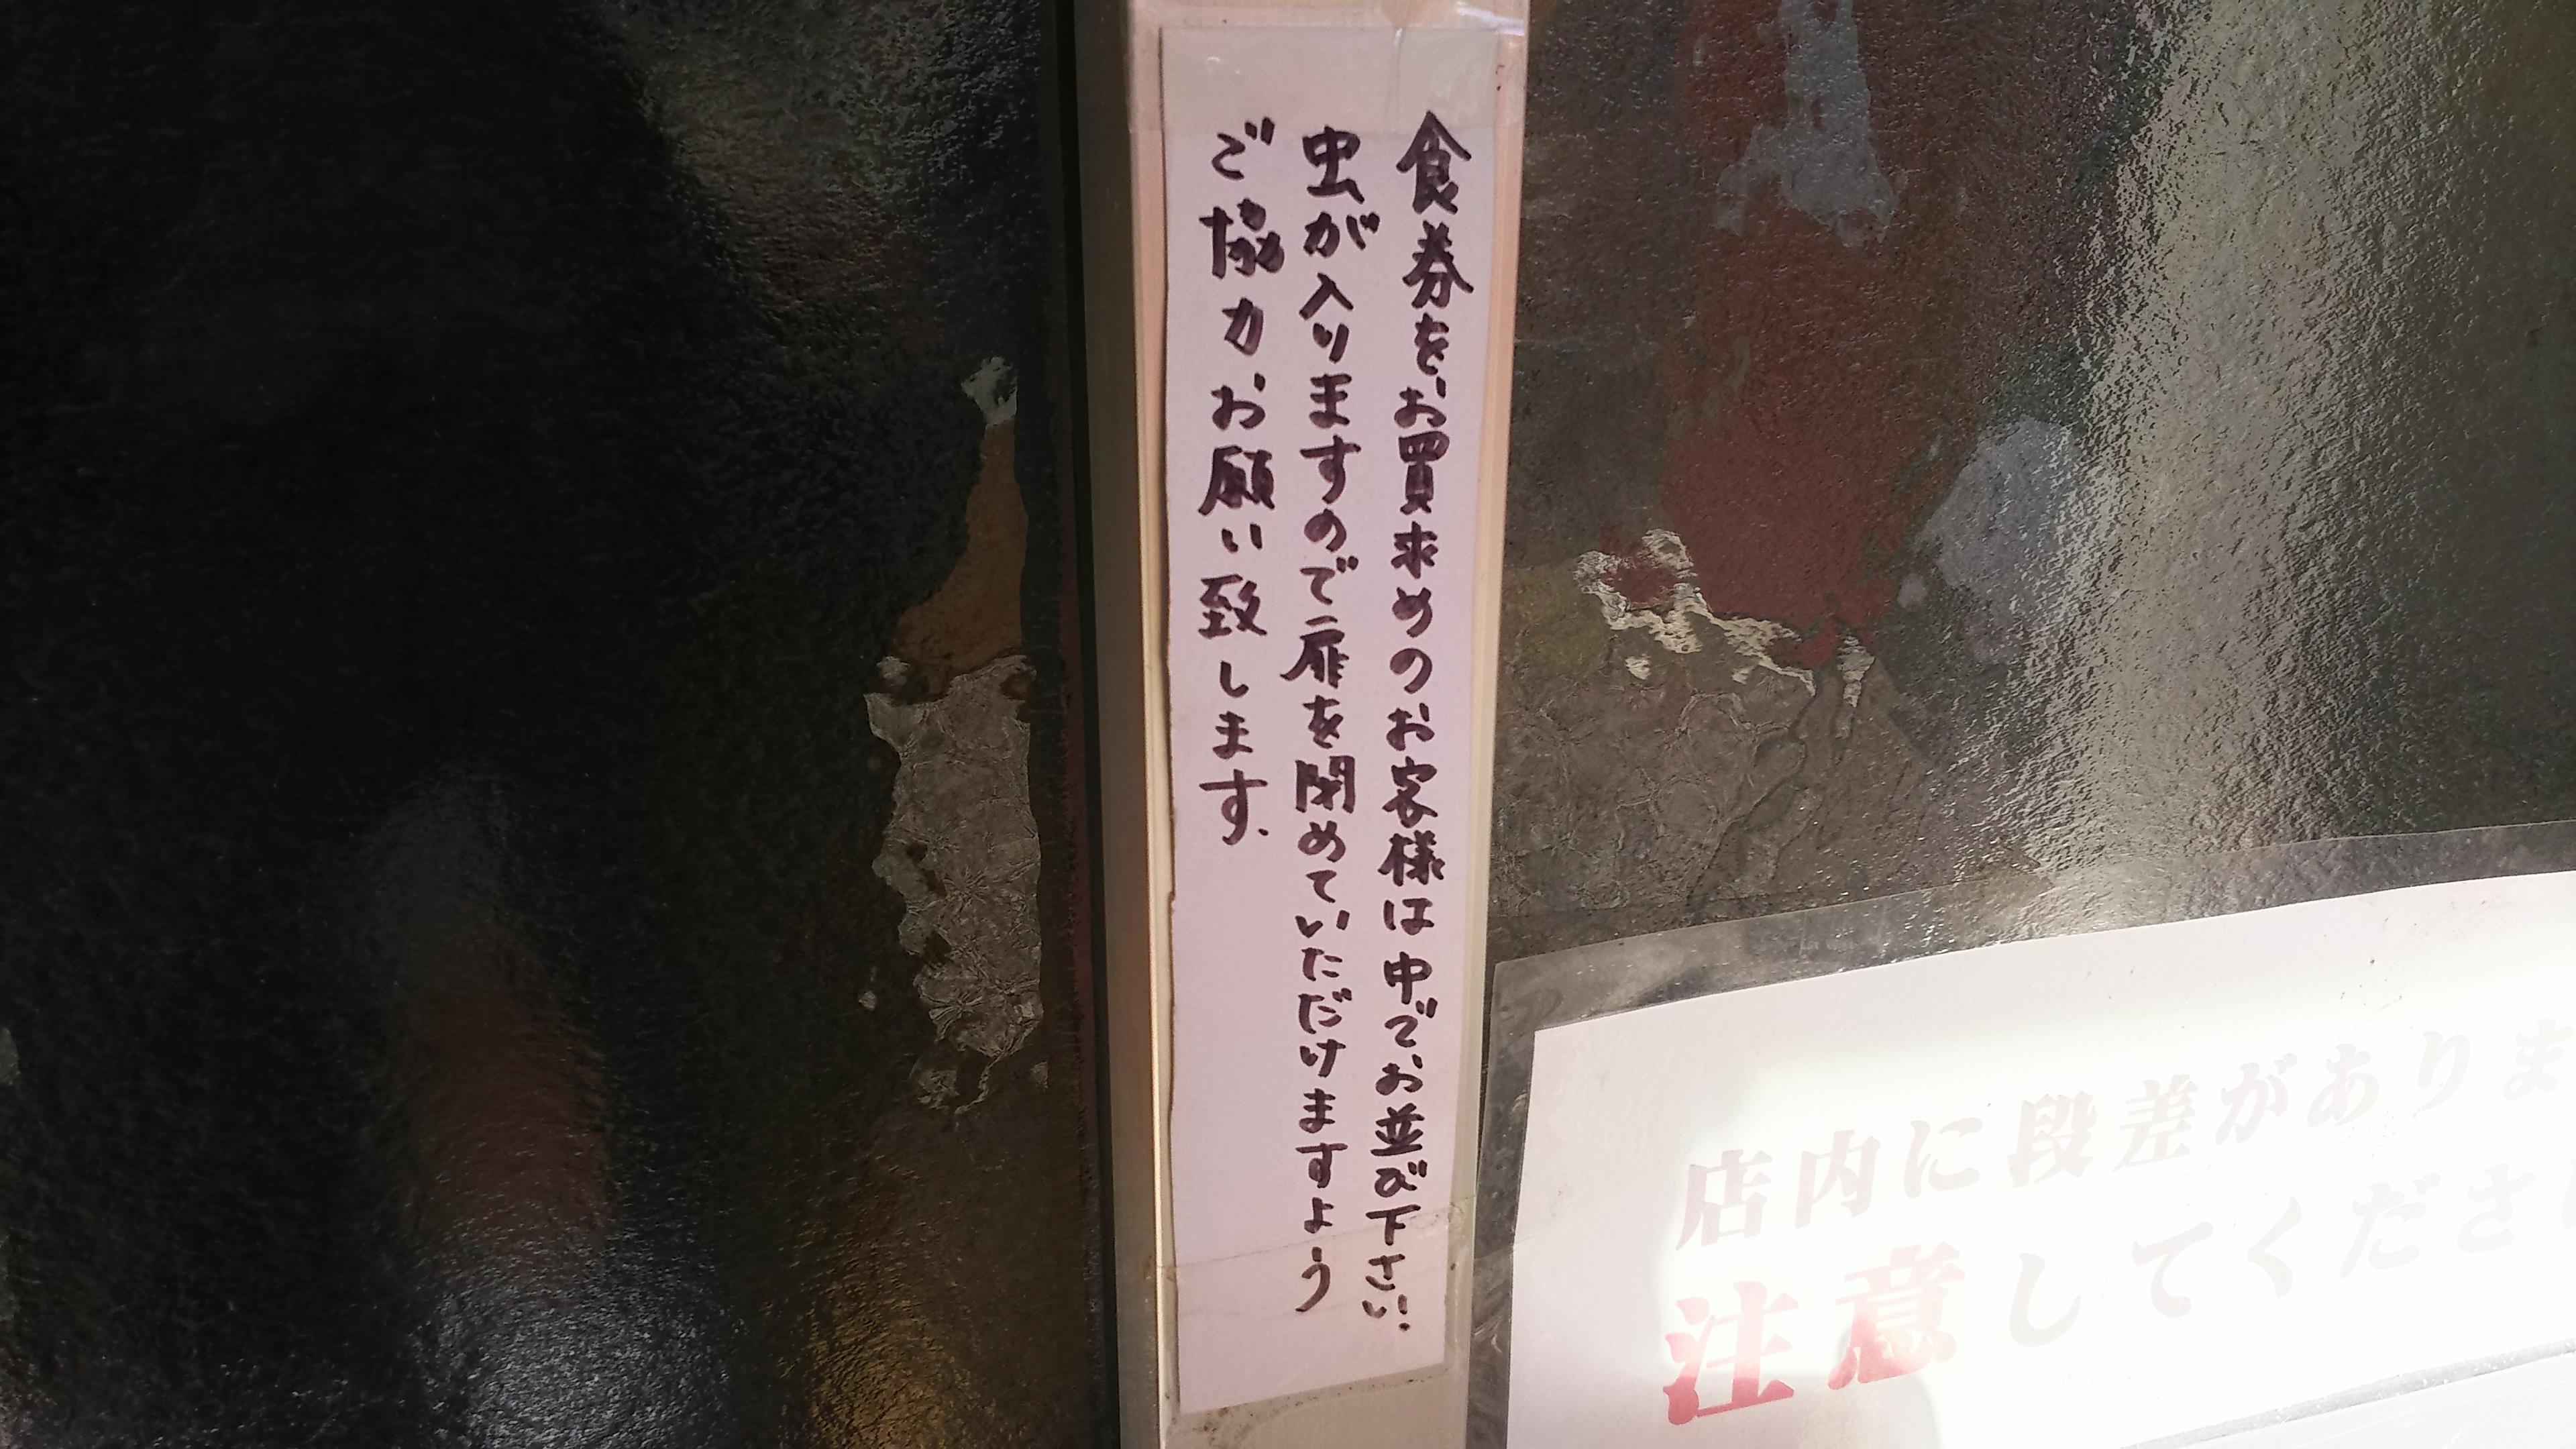 食券をお買求めのお客様は中でお並び下さい.
虫が入りますので扉を閉めていただけますよう
ご協力お願い致します.
店内に段差がありま
注意してくださ